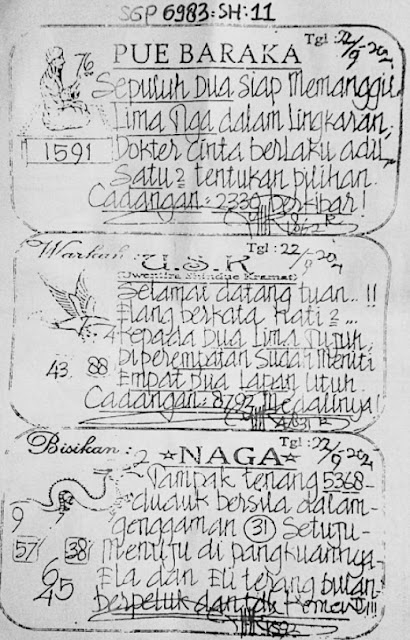 SGP 6983:SH:11
PUE BARAKA
Tgl : 22/9-202
76
Sepuluh Dua siap Memanggil
Lima Tiga dalam Lingkaran,
1591
Dokter Cinta berlaku adil
Satu 2 tentukan pilihan.
Cadangan : 2330 berkibar!
Warkah : U.S.K
Tgl : 22/9 202
(Uwentira Shindue Kramat)
Selamat datang tuan...!!
Elang berkata Hati 2 ...
Kepada Dua Lima Tujuh,
43 88
Diperempatan Sudah Menuti
Empat Dua Lapan Utuh.
Cadangan : 8792 Medalinya!
Bisikan : 2
☆NAGA☆
Tgl : 22/9 202
Tampak tenang 5368-
duduk bersila dalam-
9 7
genggaman (31) Setuju-
57 38
Menuju di pangkuannya-
6
Ela dan Eli terang bulan-
45
berpeluk dan di Komen!!!